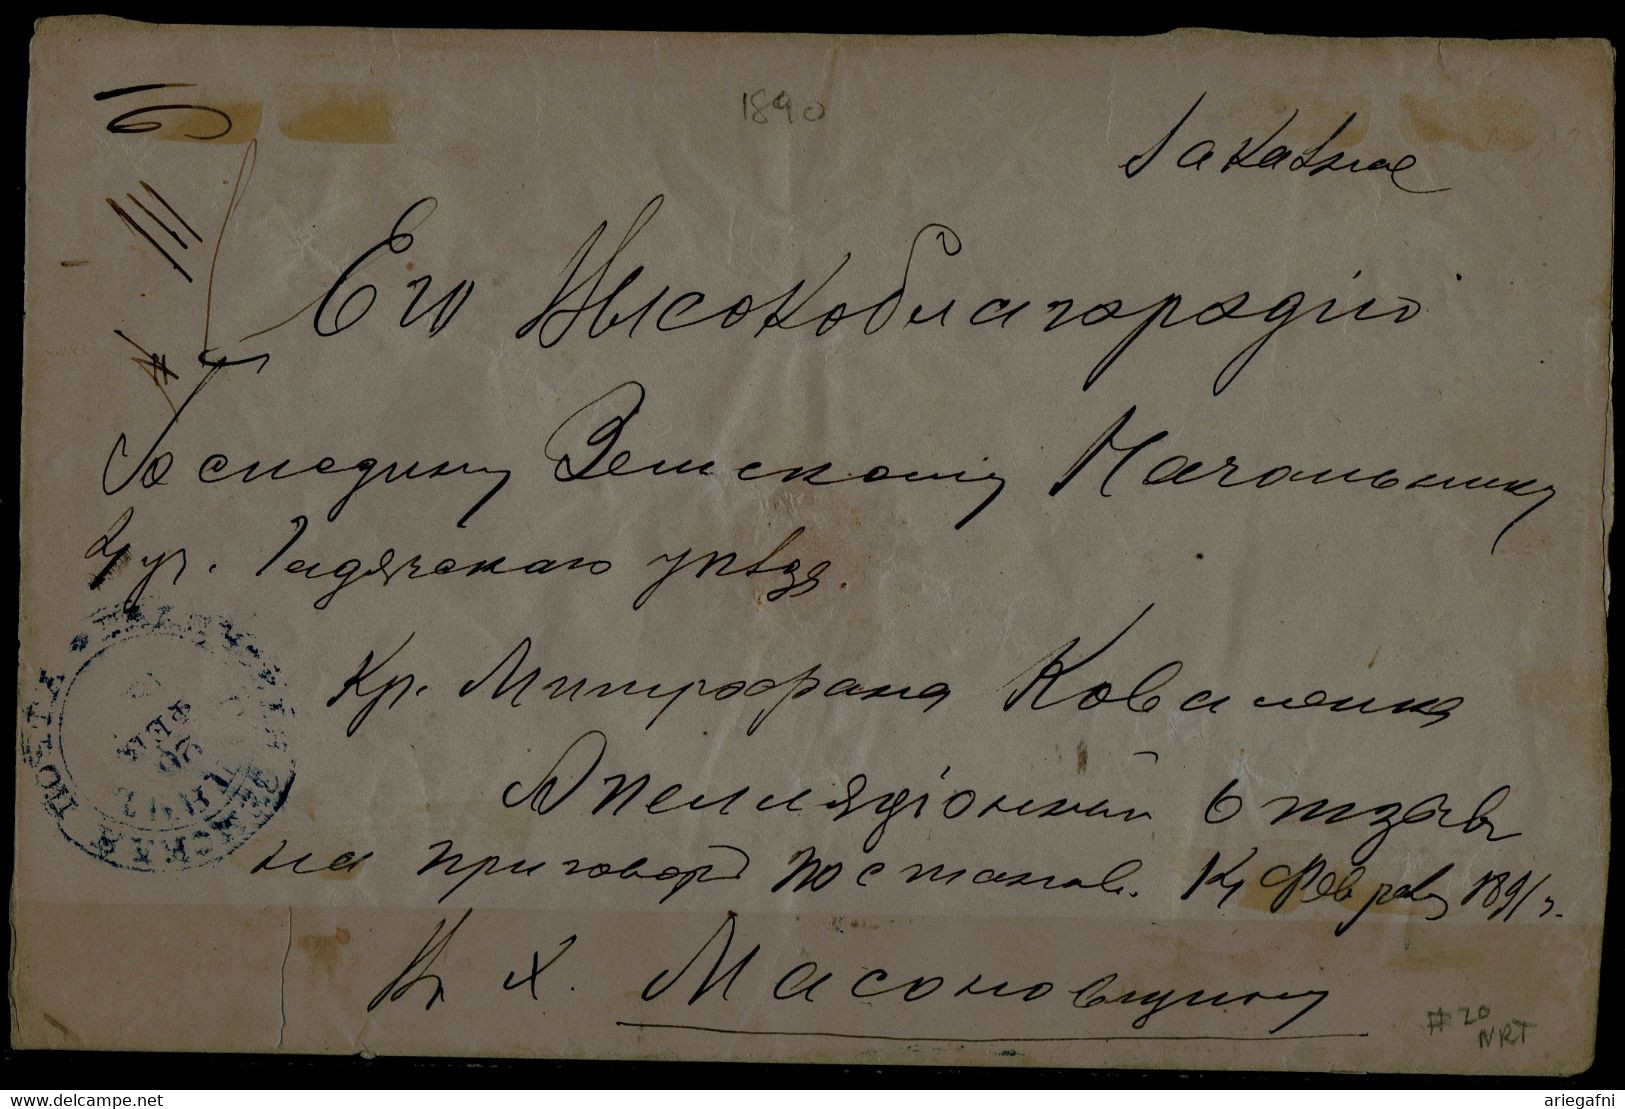 1890
Заказное
Его Высокоблагородію
Господину Земскому Начальнику
уч. Гадячскаго уѣзда.
Кр. Митрофана Коваленка
Апелляціонный отзывъ
на приговоръ постанов. Февраля 1891 г.
Въ х. Масоновщину
ПОЧТА
ЗЕМСКАЯ
ФЕВ
#20
NRT
delcampe.net
ariegafni